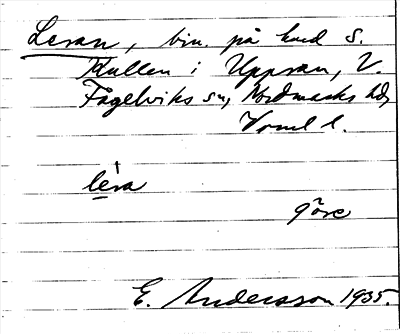 Leran, bin. på hmd S.
Kullen i Uppsan, V.
Fågelviks sn, Nordmarks hd,
Vrml l.
lèra
göre
E. Andersson 1935.